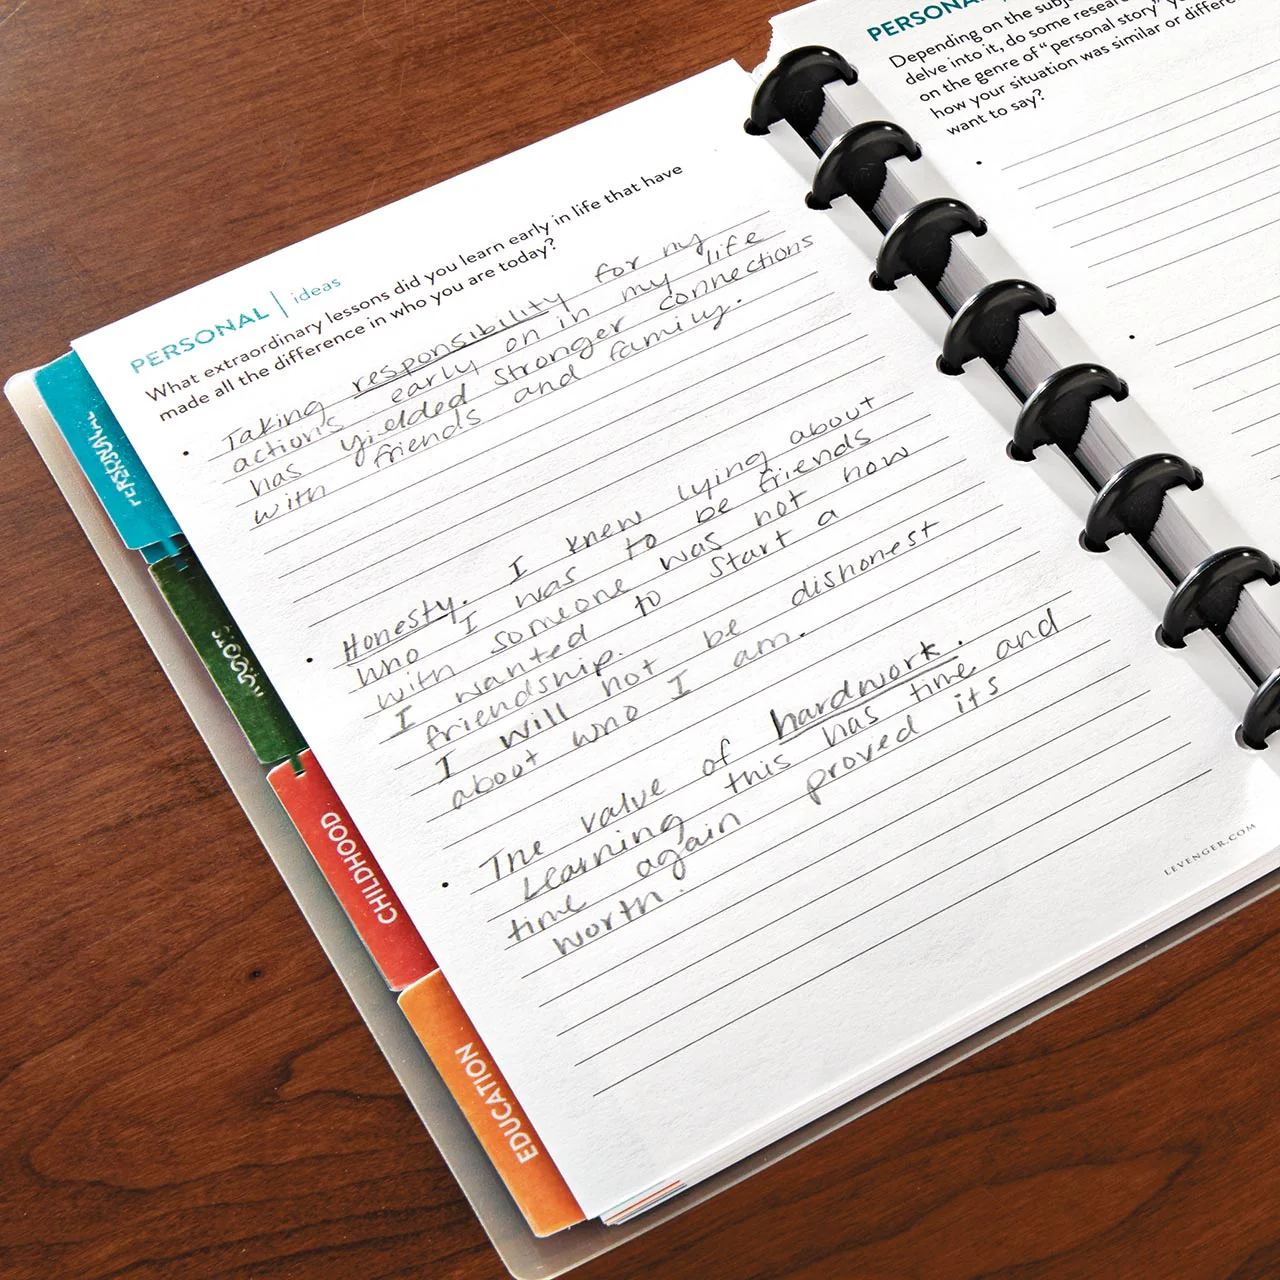 PERSONAL | ideas
What extraordinary lessons did you learn early in life that have
made all the difference in who you are today?
• Taking responsibility for my
actions early on in my life
has yielded stronger connections
with friends and family.
• Honesty. I knew lying about
who I was to be friends
with someone was not how
I wanted to start a
friendship.
I will not be dishonest
about who I am.
• The value of hardwork.
Learning this has time and
time again proved its
worth.
LEVENGER.COM
PERSONAL
CHILDHOOD
EDUCATION
PERSONAL
Depending on the subj
delve into it, do some resear
on the genre of "personal story"
how your situation was similar or differe
want to say?